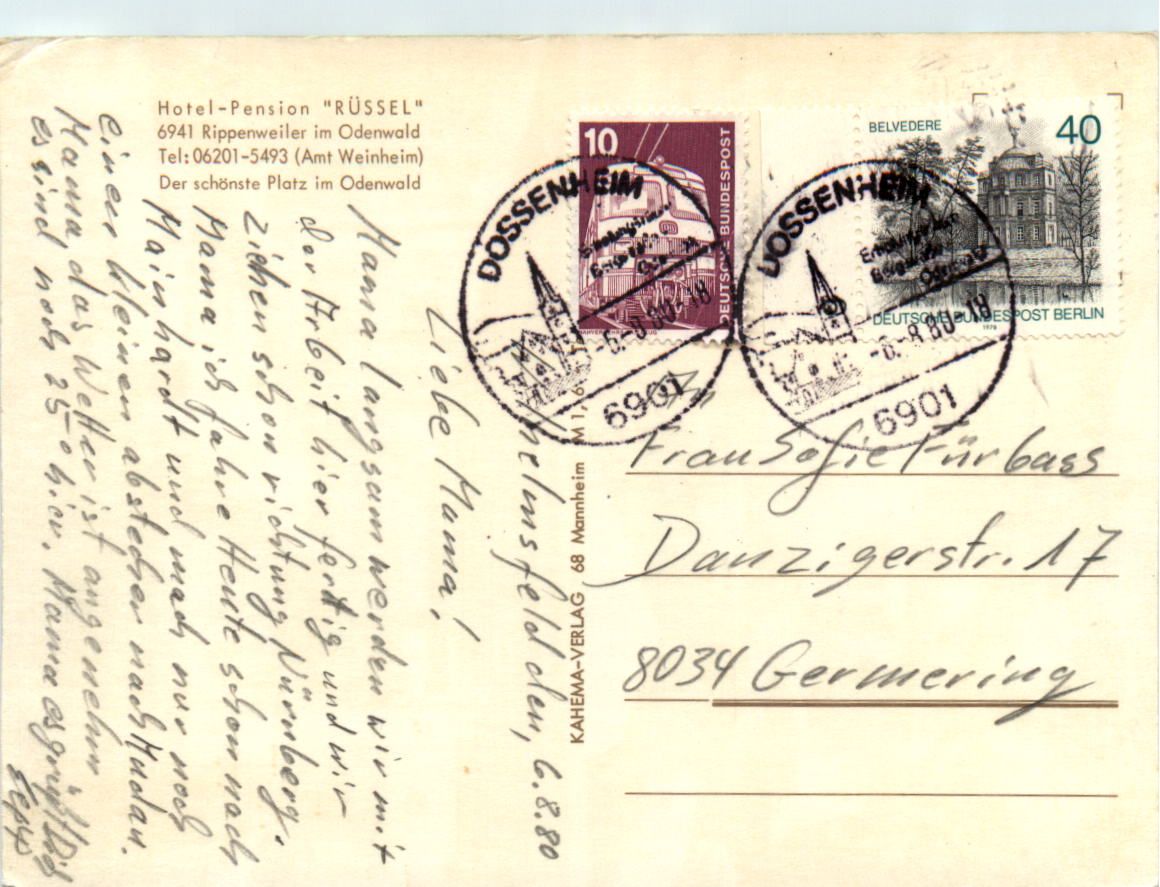 Hotel-Pension "RÜSSEL"
6941 Rippenweiler im Odenwald
Tel: 06201-5493 (Amt Weinheim)
Der schönste Platz im Odenwald
helmsfeld den, 6.8.80
Liebe Mama!
Mama langsam werden wir mit
der Arbeit hier fertig und wir
ziehen schon richtung Nürnberg.
Mama ich fahre Heute schon nach
Mainhardt und mach nur noch
einen kleinen abstecher nach
Mama das Wetter ist angenehm
es sind noch 25° hier. Mama es grüßt Dich
Sepp
KAHEMA-VERLAG 68 Mannheim M 1, 6
10
DEUTSCHE BUNDESPOST
BELVEDERE
40
DEUTSCHE BUNDESPOST BERLIN
1978
DOSSENHEIM
-6.-8.80-18
6901
DOSSENHEIM
-6.-8.80-18
6901
Frau Sofie Fürbass
Danzigerstr. 17
8034 Germering